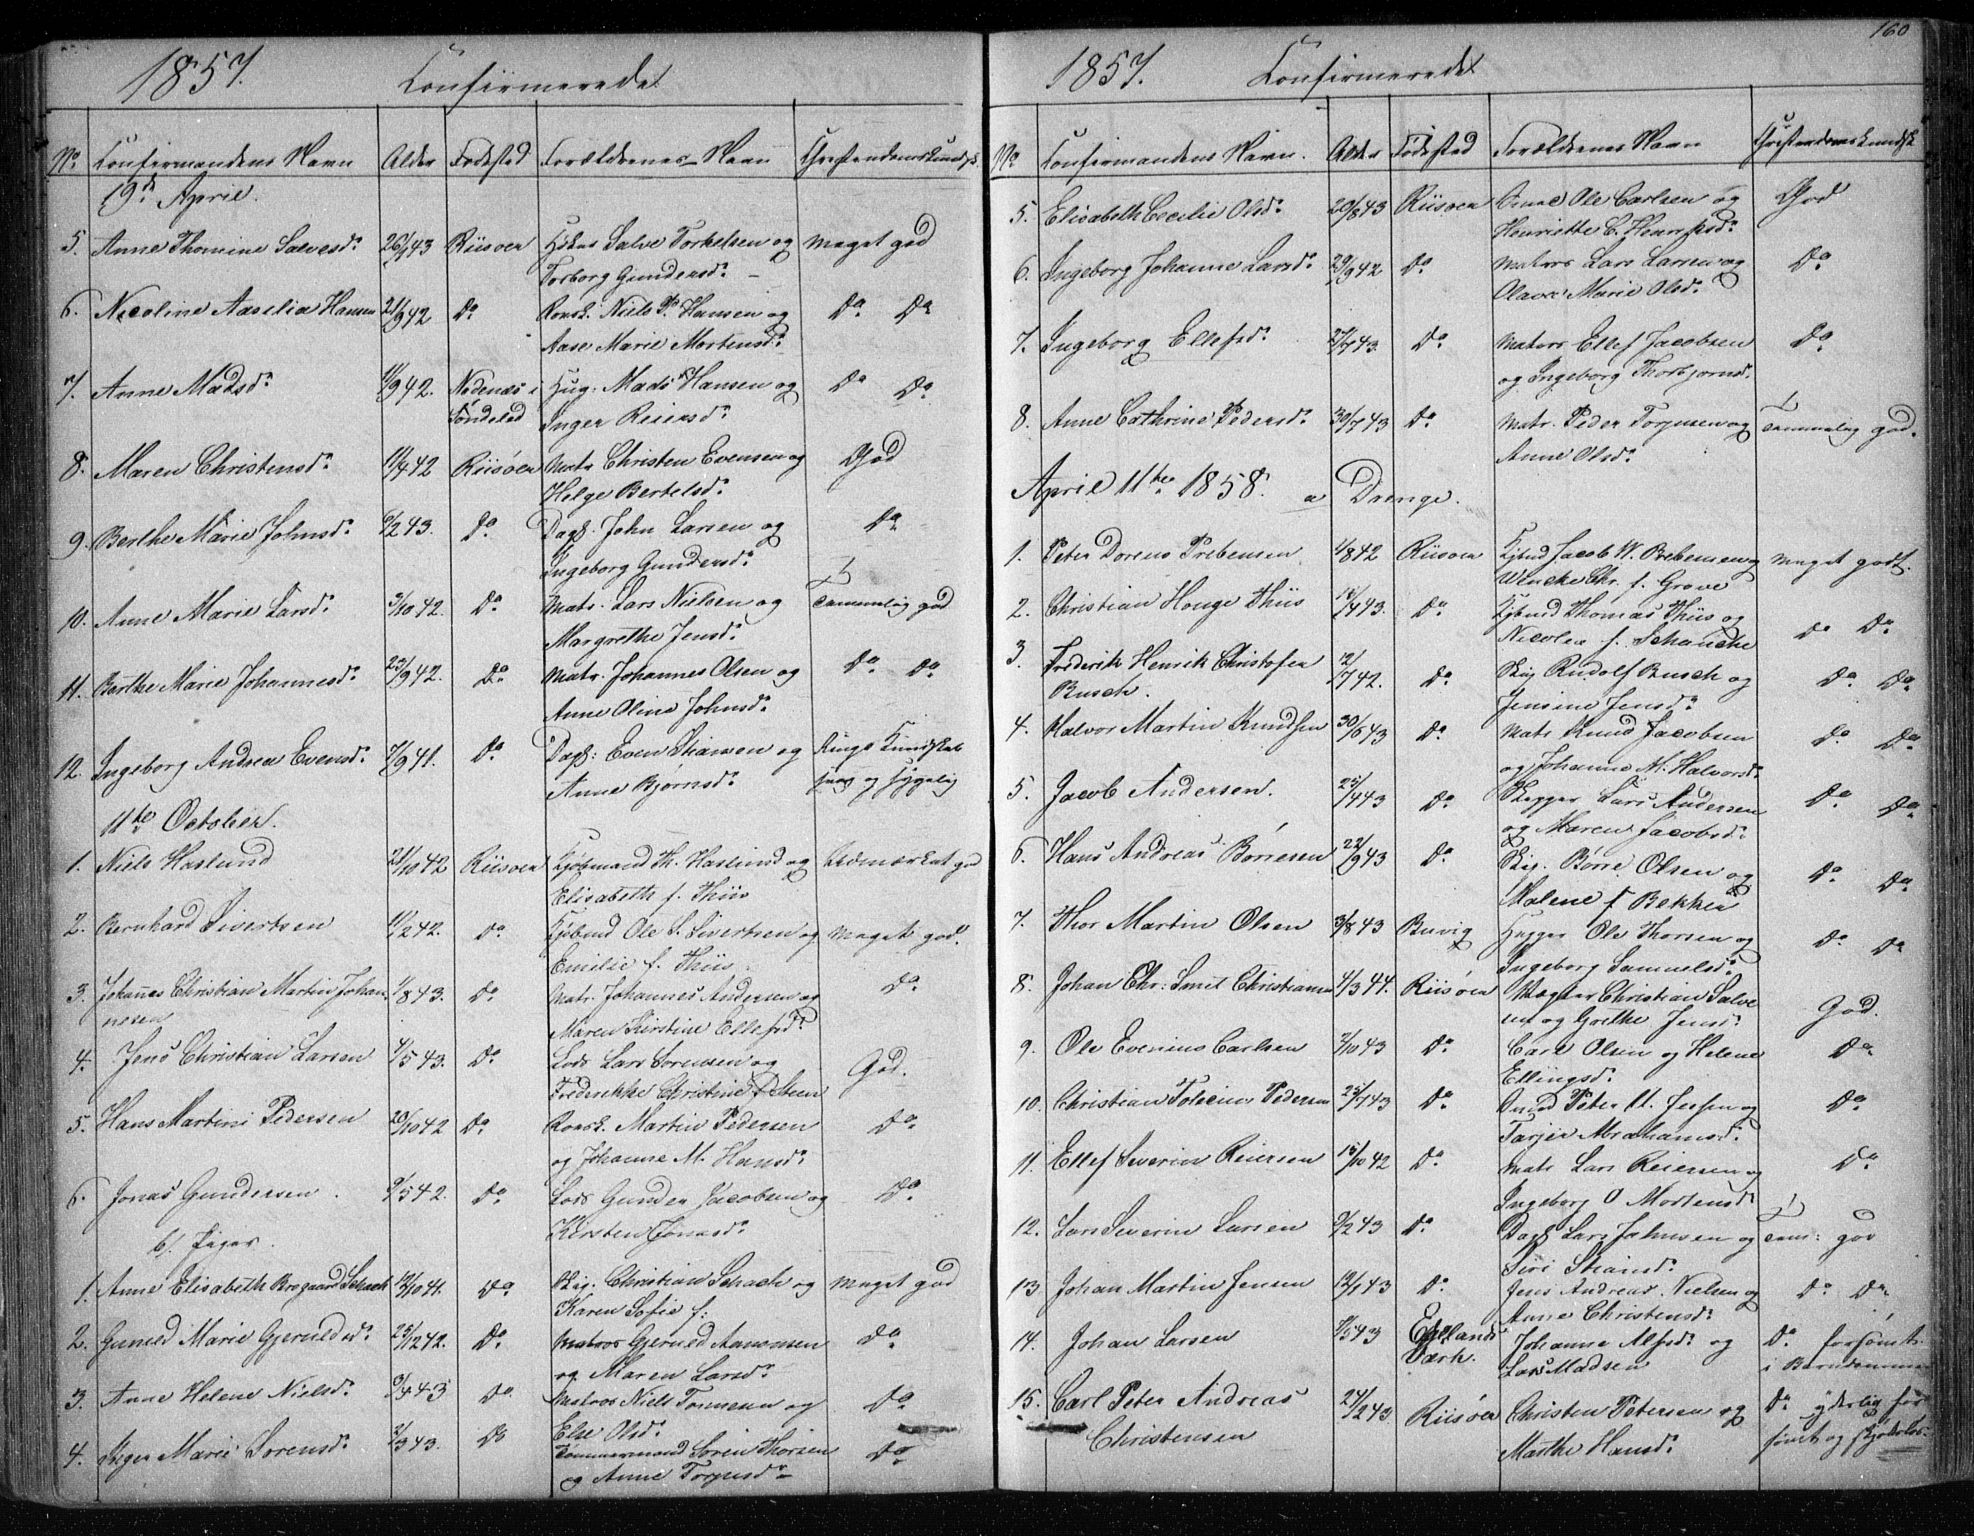 1857.
Confirmerede
No. Confirmandens Navn Alder Fødested Forældrenes Navn Christendomskundsk.
19de April.
5. Anne Thomine Salvesd. 26/9 43 Riisøer Salve Torkelsen og Meget god
Torborg Gundersd.
6. Nicoline Aaselia Hansen 21/9 42 Do Niels P. Hansen og Do Do
Aase Marie Mortensd.
7. Anne Madsd. 11/9 42. Nødenæs i Hug. Mads Hansen og Do Do
Søndeled Inger Reiersd.
8. Maren Christensd. 11/4 42 Riisøer Matr Christen Evensen og God
Helge Bertelsd.
9. Berthe Marie Johnsd. 9/2 43. Do Dags. John Larsen og Do
Ingeborg Gundersd.
10. Anne Marie Larsd. 3/10 42. Do Matr. Lars Nielsen og Temmelig god
Margrethe Jensd.
11. Berthe Marie Johannesd. 23/9 42. Do Matr. Johannes Olsen og Do Do
Anne Oline Johnsd.
12. Ingeborg Andrea Evensd. 7/9 41. Do Dags: Even og Ringe Kundskab
Anne Bjørnsd. svag og sygelig
11te October.
1. Niels Haslund 21/10 42 Riisøer Kjøbmand Th. Haslund og Udmærket god
Elisabeth f. Thiis
2. Bernhard Sivertsen 11/2 42. Do Kjøbmd Ole S. Sivertsen og Meget god.
Emilie f. Thiis
3. Johannes Christian Martin Johan- 1/8 43. Do Matr. Johannes Andersen og Do
nesen Maren Kirstine Ellefsd.
4. Jens Christian Larsen 4/5 43. Do Lods Lars Sørensen og God.
Frederikke Christine
5. Hans Martin Pedersen 20/10 42 Do Martin Pedersen Do
og Johanne M. Hansd.
6. Jonas Gundersen 9/5 42. Do Lods Gunder Jacobsen og Do
Kirsten Jonasd.
b/ Piger.
1. Anne Elisabeth Schach 12/10 41. Do Skip. Christian Schach og Meget god
Karen Sofie f:
2. Gunild Marie Gjeruldsd. 25/12 42. Do Matros Gjeruld Aanonsen Do
og Maren Larsd.
3. Anne Helene Nielsd. 9/4 43 Do Matros Niels Tønnesen og Do
Else Olsd.
4. Inger Marie Sørensd. 2/3 43. Do Tømmermand Søren Thorsen Do
og Anne Torjusd.
160
1857.
Confirmerede
No Confirmandens Navn. Alder Fødested Forældrenes Navn Christendomskundsk
5. Elisabeth Cecilie Olsd. 20/8 43 Riisøer Ole Carlsen og God
Henriette C. Henriksd.
6. Ingeborg Johanne Larsd. 29/9 42 Do Matros Lars Larsen og Do
Olave Marie Olsd.
7. Ingeborg Ellefsd. 27/7 43. Do Matros Ellef Jacobsen Do
og Ingeborg Thorbjørnsd.
8. Anne Cathrine Pedersd. 30/7 43 Do Matr. Peder Torjusen og Temmelig god.
Anne Olsd.
April 11te 1858. a Drenge.
1. Peter Dorens Prebensen 4/8 42 Riisøer Kjbmd Jacob W. Prebensen og Meget godt.
Wencke Chr. f. Grove
2. Christian Houge Thiis 14/4 43. Do Kjbmd Thomas Thiis og Do Do
Nicolea f. Schancke
3. Frederik Henrik Christofer 12/7 42. Do Skip Rudolf Busch og Do Do
Busch. Jensine Jensd.
4. Halvor Martin Knudsen 30/6 43 Do Matr Knud Jacobsen Do Do
og Johanne M. Halvorsd.
5. Jacob Andersen. 25/4 43 Do Skipper Lars Andersen Do Do
og Maren Jacobsd.
6. Hans Andreas Børresen 22/9 43 Do Skip. Børre Olsen og Do Do
Malene f Bekker
7. Thor Martin Olsen 3/8 43 Buvig Ole Thorsen og Do Do
Ingeborg Samuelsd.
8. Johan Chr: Smit Christiansen 4/3 44. Riisøer Christian Salve God.
sen og Grethe Jensd.
9. Ole Evenius Carlsen 7/10 43 Do Carl Olsen og Helene Do
Ellingsd.
10. Christian Pedersen 25/7 43 Do Peter og Do
Tarjer Abrahamsd.
11. Ellef Severin Reiersen 15/10 42 Do Matr Lars Reiersen og Do
Ingeborg O Mortensd
12. Lars Severin Larsen 9/2 43 Do Dags Lars Johnsen og Tem: god
Siri
13 Johan Martin Jensen 12/1 43 Do Jens Andreas Nielsen og Do Do
Anne Christensd.
14. Johan Larsen 11/5 43 Egelands Johanne Alfsd. og Do forsømt
Værk. Lars Madsen i Barndommen
15. Carl Peter Andreas 24/2 43 Riisøer Christen Petersen og Do yderlig for
Christensen Marthe Hansd. sømt og skjødesløs.